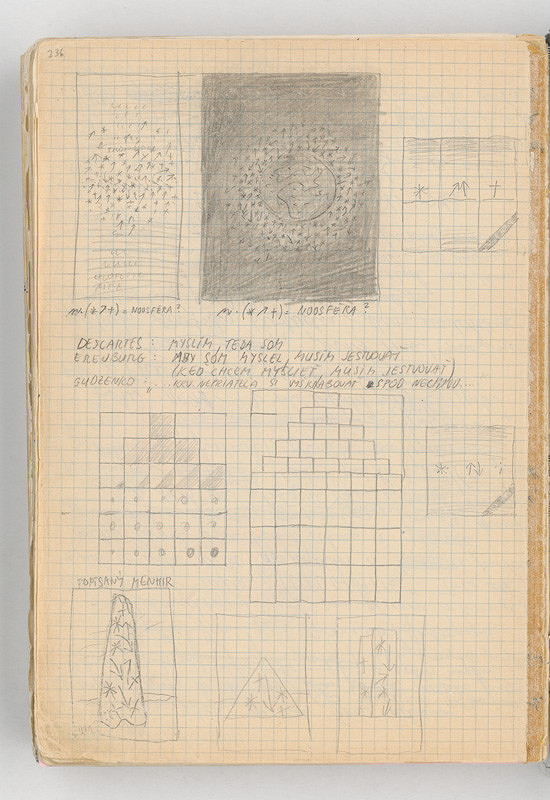 236
m.(*↗+) = NOOSFÉRA?
m.(*↗+) = NOOSFÉRA?
DESCARTES: MYSLÍM, TEDA SOM
ERENBURG: ABY SOM MYSLEL, MUSÍM JESTVOVAŤ
(KEĎ CHCEM MYSLIEŤ, MUSÍM JESTVOVAŤ)
GUDZENKO: „... KRV NEPRIATEĽA SI VYŠKRABOVAŤ SPOD NECHTOV...
POPÍSANÝ MENHIR